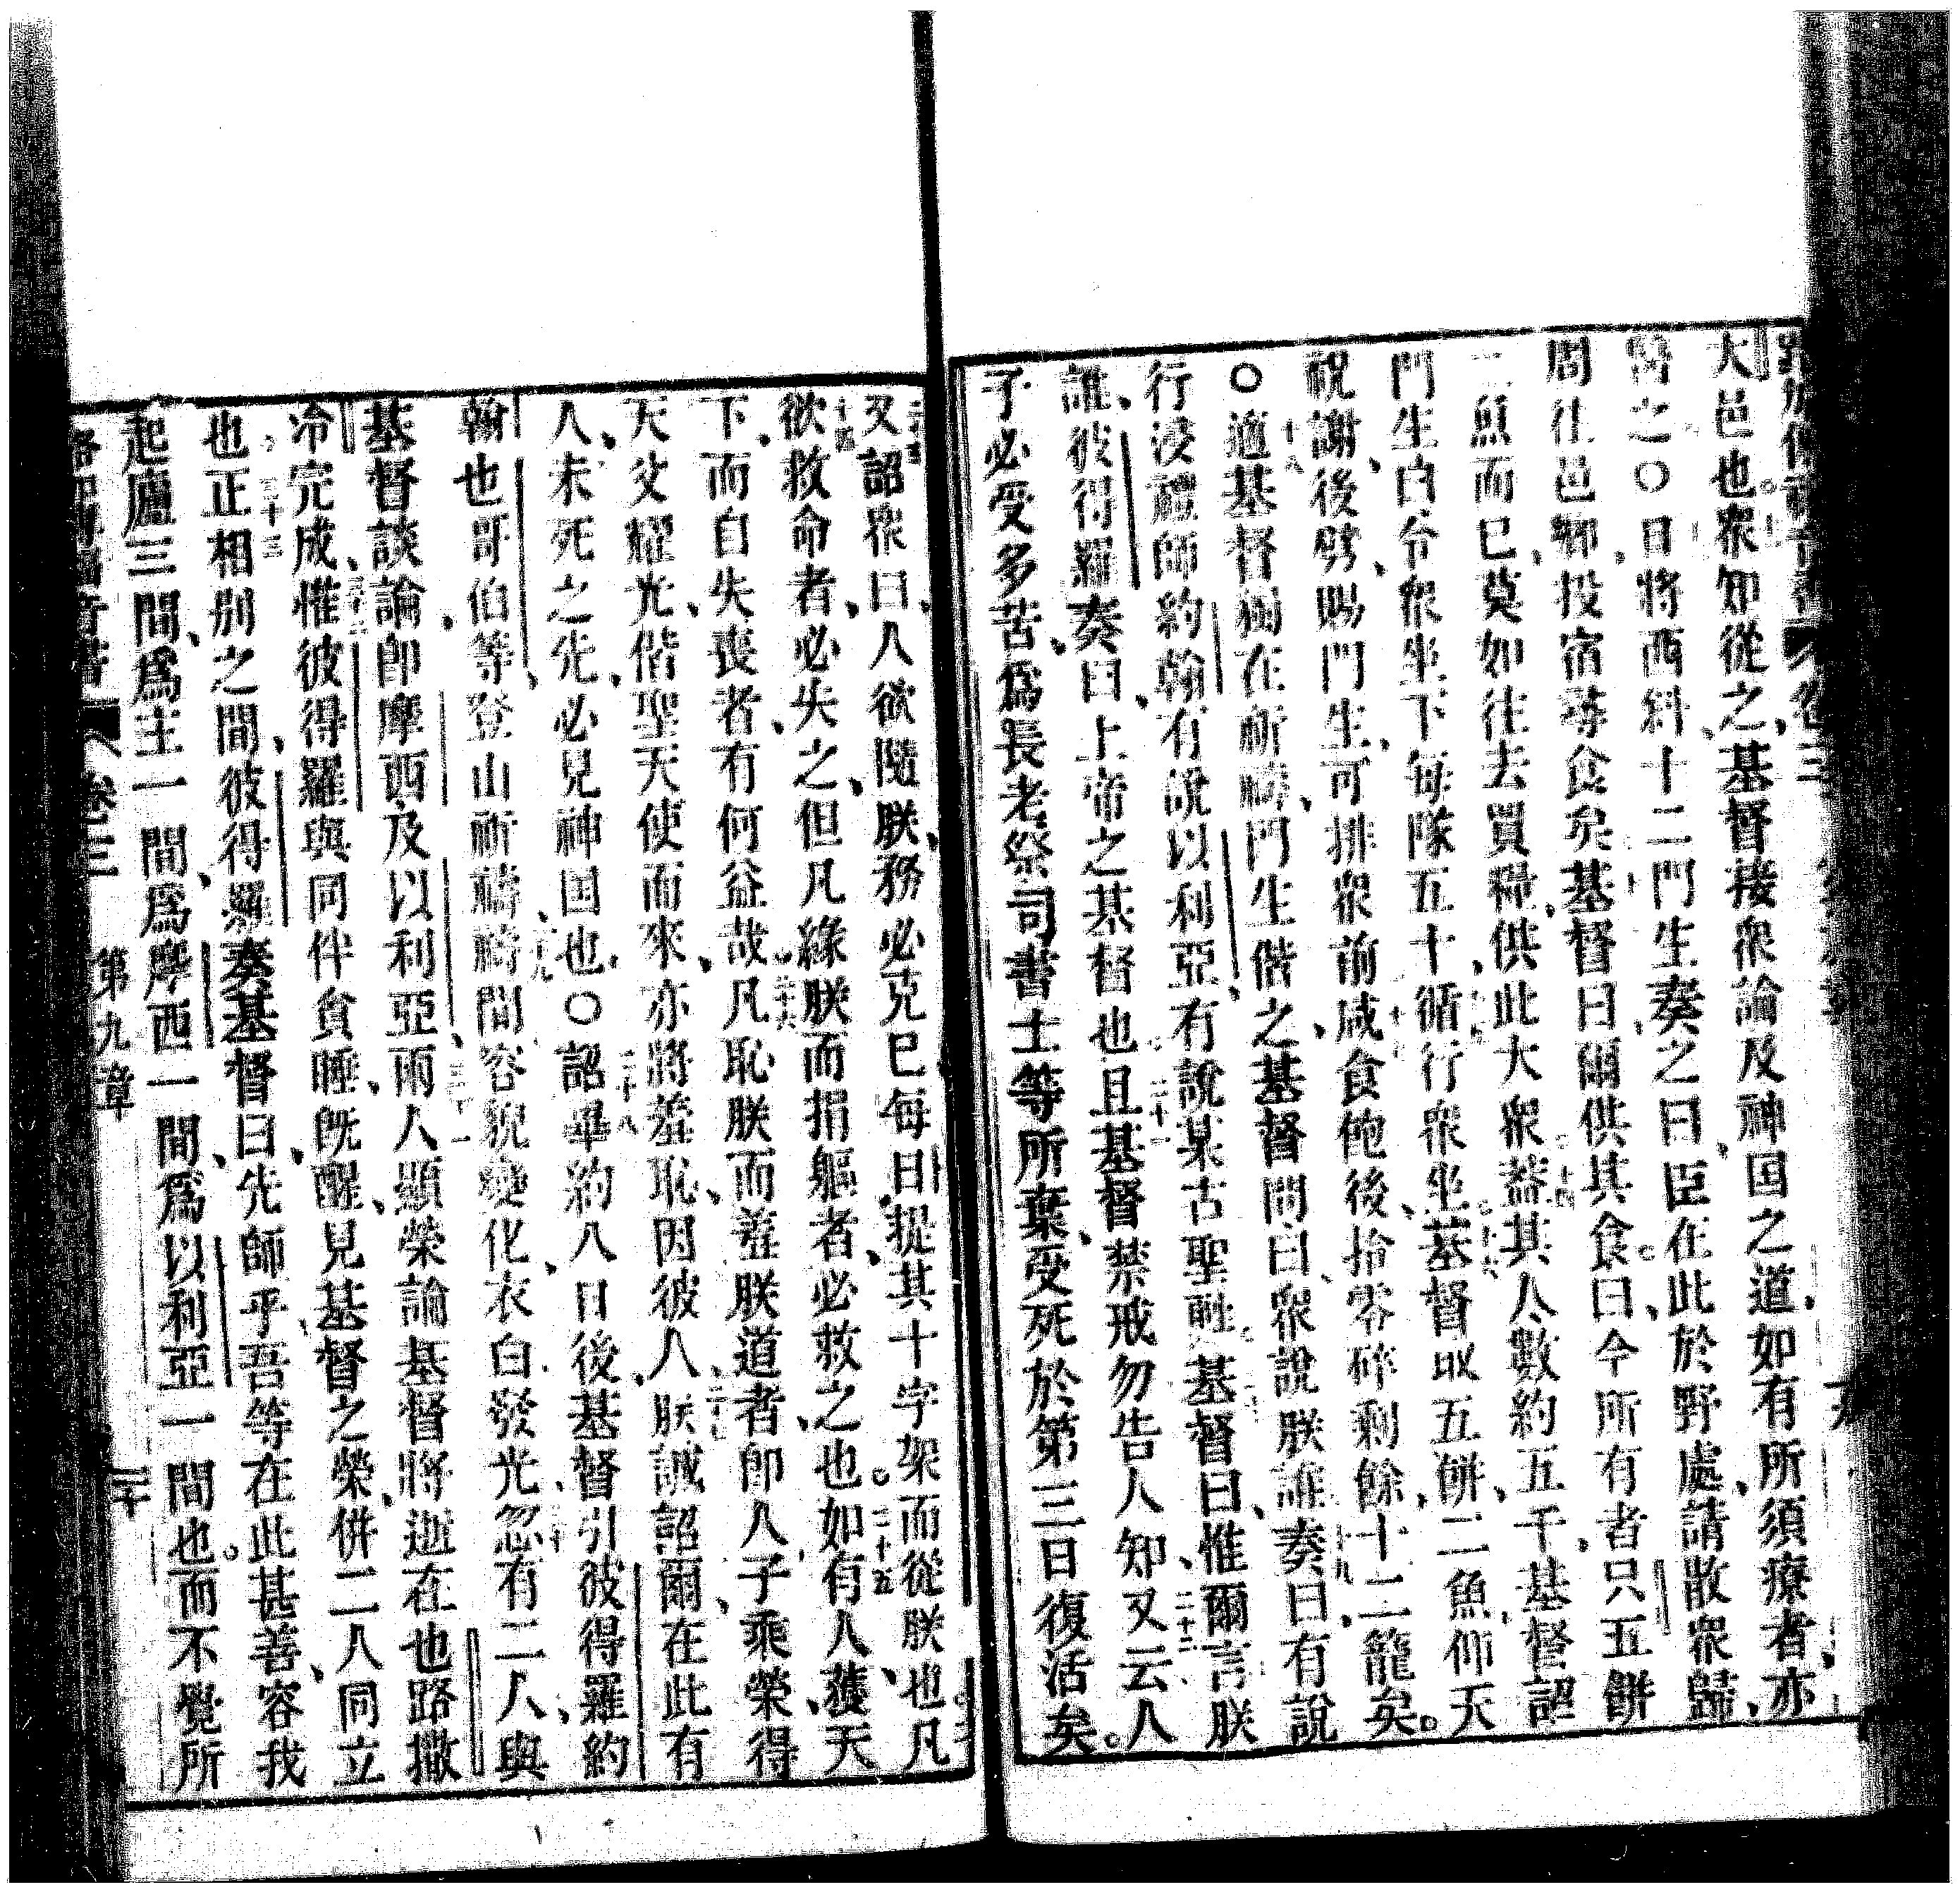 路加傳福音書 卷三
大邑也衆知從之基督接衆論及神国之道如有所須療者亦
醫之〇日將西斜十二門生奏之曰臣在此於野處請散衆歸
周往邑鄉投宿尋食矣基督曰爾供其食曰今所有者只五餅
二魚而已莫如往去買糧供此大衆蓋其人數約五千基督詔
門生曰令衆坐下每隊五十循行衆坐基督取五餅二魚仰天
祝謝後劈賜門生可排衆前咸食飽後拾零碎剩餘十二籠矣
〇適基督獨在祈禱門生偕之基督問曰衆說朕誰奏曰有說
行浸禮師約翰有說以利亞有說某古聖甦基督曰惟爾言朕
誰彼得羅奏曰上帝之基督也且基督禁戒勿告人知又云人
子必受多苦爲長老祭司書士等所棄受死於第三日復活矣
又詔衆曰人欲隨朕務必克已每日提其十字架而從朕也凡
欲救命者必失之但凡緣朕而捐軀者必救之也如有人獲天
下而自失喪者有何益哉凡恥朕而羞朕道者卽人子乘榮得
天父耀光偕聖天使而來亦將羞恥因彼人朕誠詔爾在此有
人未死之先必見神国也〇詔畢約八日後基督引彼得羅約
翰也哥伯等登山祈禱禱間容貌變化衣白發光忽有二人與
基督談論卽摩西及以利亞兩人顯榮論基督將逝在也路撒
冷完成惟彼得羅與同伴貪睡旣醒見基督之榮併二人同立
也正相別之間彼得羅奏基督曰先師乎吾等在此甚善容我
起廬三間爲主一間爲摩西一間爲以利亞一間也而不覺所
路加傳福音書 卷三 第九章 三十